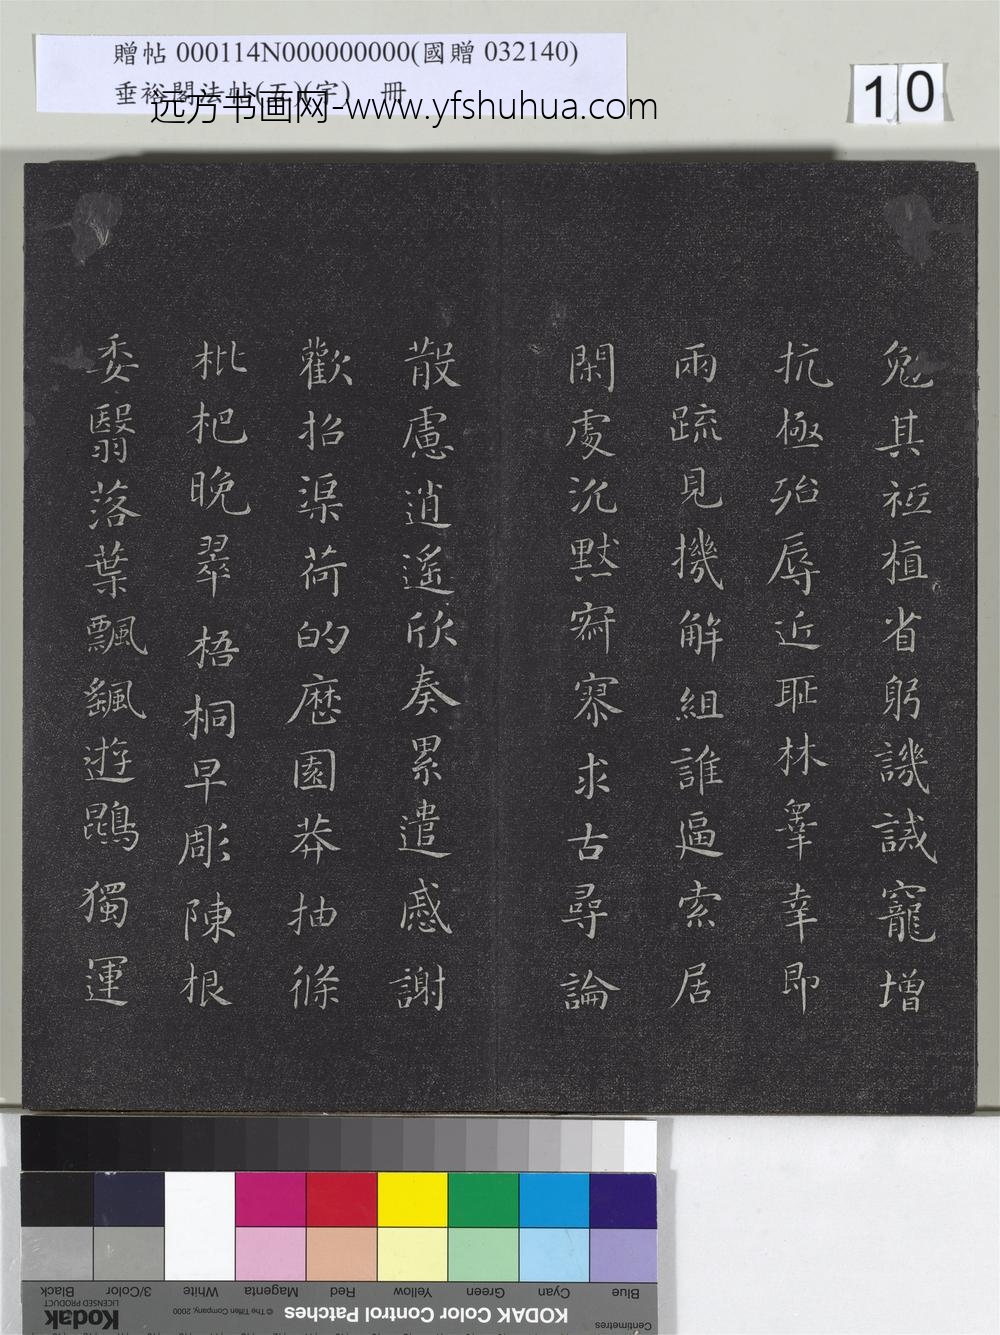 贈帖 000114N000000000(國贈 032140)
垂裕閣法帖(五)(宇) 冊
远方书画网-www.yfshuhua.com
10
勉其祗植省躬譏誡寵增
抗極殆辱近恥林睾幸即
兩疏見機解組誰逼索居
閑處沉默寂寥求古尋論
散慮逍遙欣奏累遣慼謝
歡招渠荷的歷園莽抽條
枇杷晚翠梧桐早彫陳根
委翳落葉飄颻遊鵾獨運
Blue Cyan Green Yellow Red Magenta White 3/Color Black
Centimetres
KODAK Color Control Patches
© The Tiffen Company, 2000
Kodak
LICENSED PRODUCT